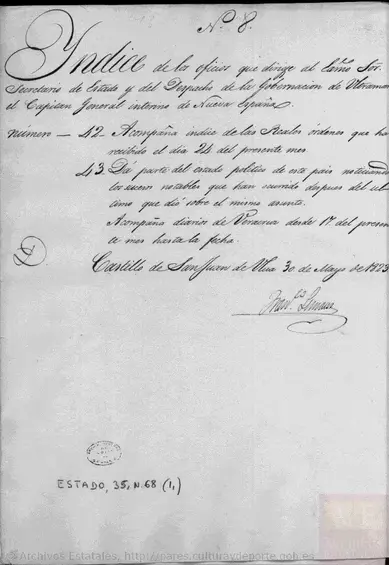 N.º 8.
Yndice de los oficios que dirige al Exmo Sor.
Secretario de Estado y del Despacho de la Gobernacion de Ultramar
el Capitan General interino de Nueva España.
Numero — 42. Acompaña indice de las Reales órdenes que ha
recibido el dia 24 del presente mes
43. Dá parte del estado politico de este pais noticiando
los sucesos notables que han ocurrido despues del ul-
timo que dió sobre el mismo asunto.
Acompaña diarios de Veracruz desde 1º del presen-
te mes hasta la fecha.
Castillo de San Juan de Ulua 30 de Mayo de 1823
Fran.co Lemaur
ESTADO, 35, N. 68 (1,)
© Archivos Estatales, http://pares.culturaydeporte.gob.es